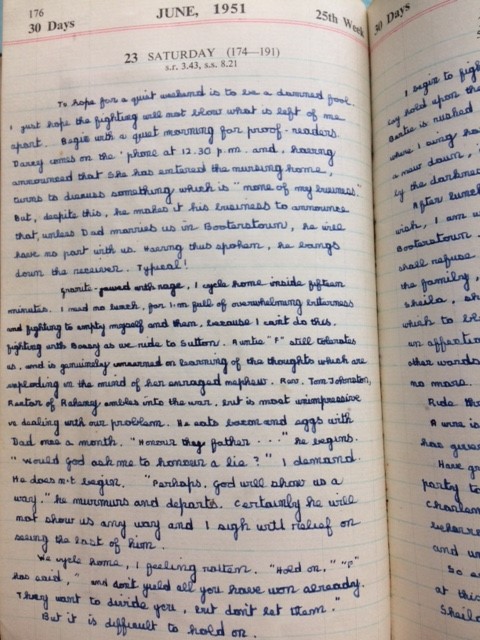 176
30 Days
JUNE, 1951
25th Week
23 SATURDAY (174—191)
s.r. 3.43, s.s. 8.21
To hope for a quiet weekend is to be a damned fool.
I just hope the fighting will not blow what is left of me
apart. Begin with a quiet morning for proof-readers.
Daddy comes on the 'phone at 12.30 p.m. and, having
announced that she has entered the nursing home,
turns to discuss something which is "none of my business."
But, despite this, he makes it his business to announce
that, unless Dad marries us in Booterstown, he will
have no part with us. Having thus spoken, he bangs
down the receiver. Typical!
Granite-jawed with rage, I cycle home inside fifteen
minutes. I need no lunch, for I'm full of overwhelming bitterness
and fighting to empty myself and then, because I can't do this,
fighting with as we ride to Sutton. Auntie "F" still tolerates
us, and is genuinely unnerved on learning of the thoughts which are
exploding in the mind of her enraged nephew. Rev. Tom Johnston,
Rector of Raheny ambles into the war, but is most unimpressive
in dealing with our problem. He eats bacon and eggs with
Dad once a month. "Honour thy father . . ." he begins.
"Would God ask me to honour a lie?" I demand.
He doesn't begin. "Perhaps, God will show us a
way," he murmurs and departs. Certainly he will
not show us any way and I sigh with relief on
seeing the last of him.
We cycle home, I feeling rotten. "Hold on," "F"
has said, "and don't yield all you have won already.
They want to divide you, but don't let them."
But it is difficult to hold on.
30 Days
I begin to figh
hold upon the
is rushed
where I
a new down,
by the darkness
After lunch
wish, I am
Booterstown
shall refuse
the family,
Sheila, sh
which to
an affection
other words
no more.
Ride
A
has given
Have
party to
Charlem
and un
So
at this
Sheila